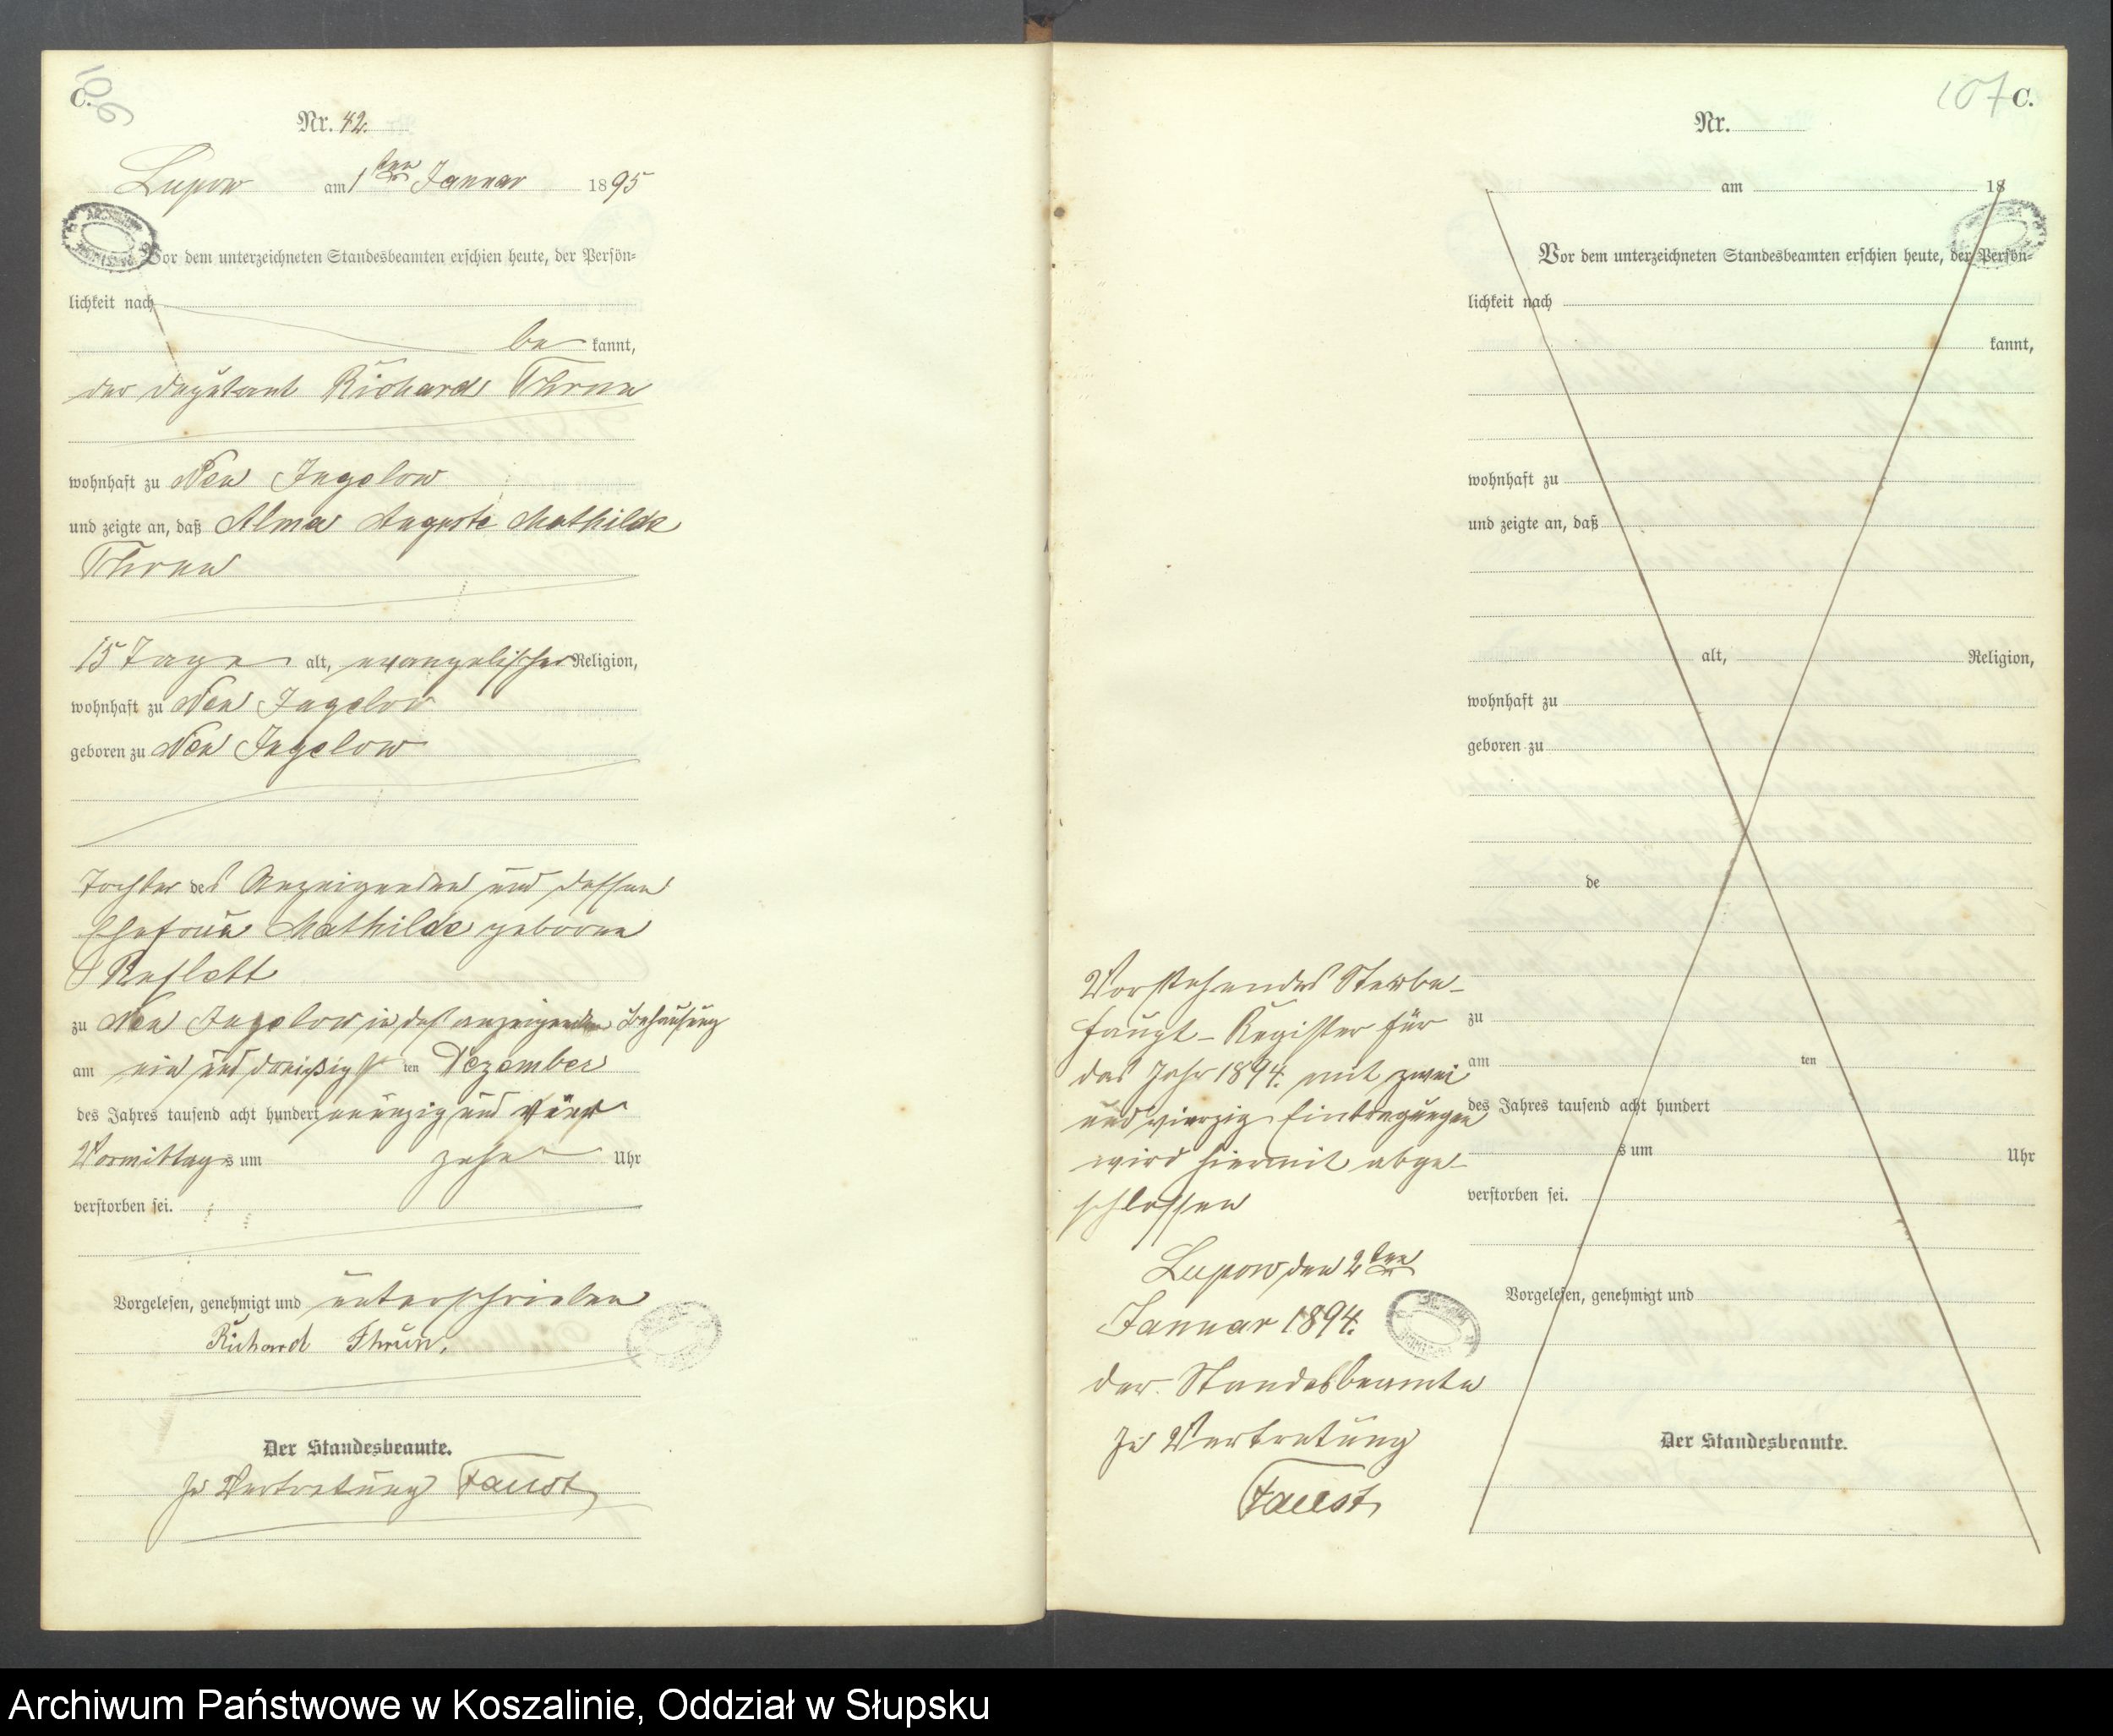 C.
106
Nr. 42.
Lupow am 1ten Januar 1895
Vor dem unterzeichneten Standesbeamten erschien heute, der Persön-
lichkeit nach
be kannt,
der Richard Thrun
wohnhaft zu Neu Jugelow
und zeigte an, daß Alma Auguste Mathilde
Thrun
15 Tage alt, evangelischer Religion,
wohnhaft zu Neu Jugelow
geboren zu Neu Jugelow
Tochter des Anzeigenden und dessen
Ehefrau Mathilde geborne
zu Neu Jugelow in des anzeigenden Behausung
am ein und dreißigst ten Dezember
des Jahres tausend acht hundert neunzig und vier
Vormittags um zehn Uhr
verstorben sei.
Vorgelesen, genehmigt und unterschrieben
Richard Thrun.
Der Standesbeamte.
In Vertretung Faust
107 C.
Nr.
am 18
Vor dem unterzeichneten Standesbeamten erschien heute, der Persön-
lichkeit nach
kannt,
wohnhaft zu
und zeigte an, daß
alt, Religion,
wohnhaft zu
geboren zu
de
zu
am ten
des Jahres tausend acht hundert
s um Uhr
verstorben sei.
Vorgelesen, genehmigt und
Der Standesbeamte.
Vorstehendes Sterbe-
haupt-Register für
das Jahr 1894. mit zwei
und vierzig Eintragungen
wird hiermit abge-
schlossen
Lupow, den 2ten
Januar 1894.
der Standesbeamte
In Vertretung
Faust
Archiwum Państwowe w Koszalinie, Oddział w Słupsku